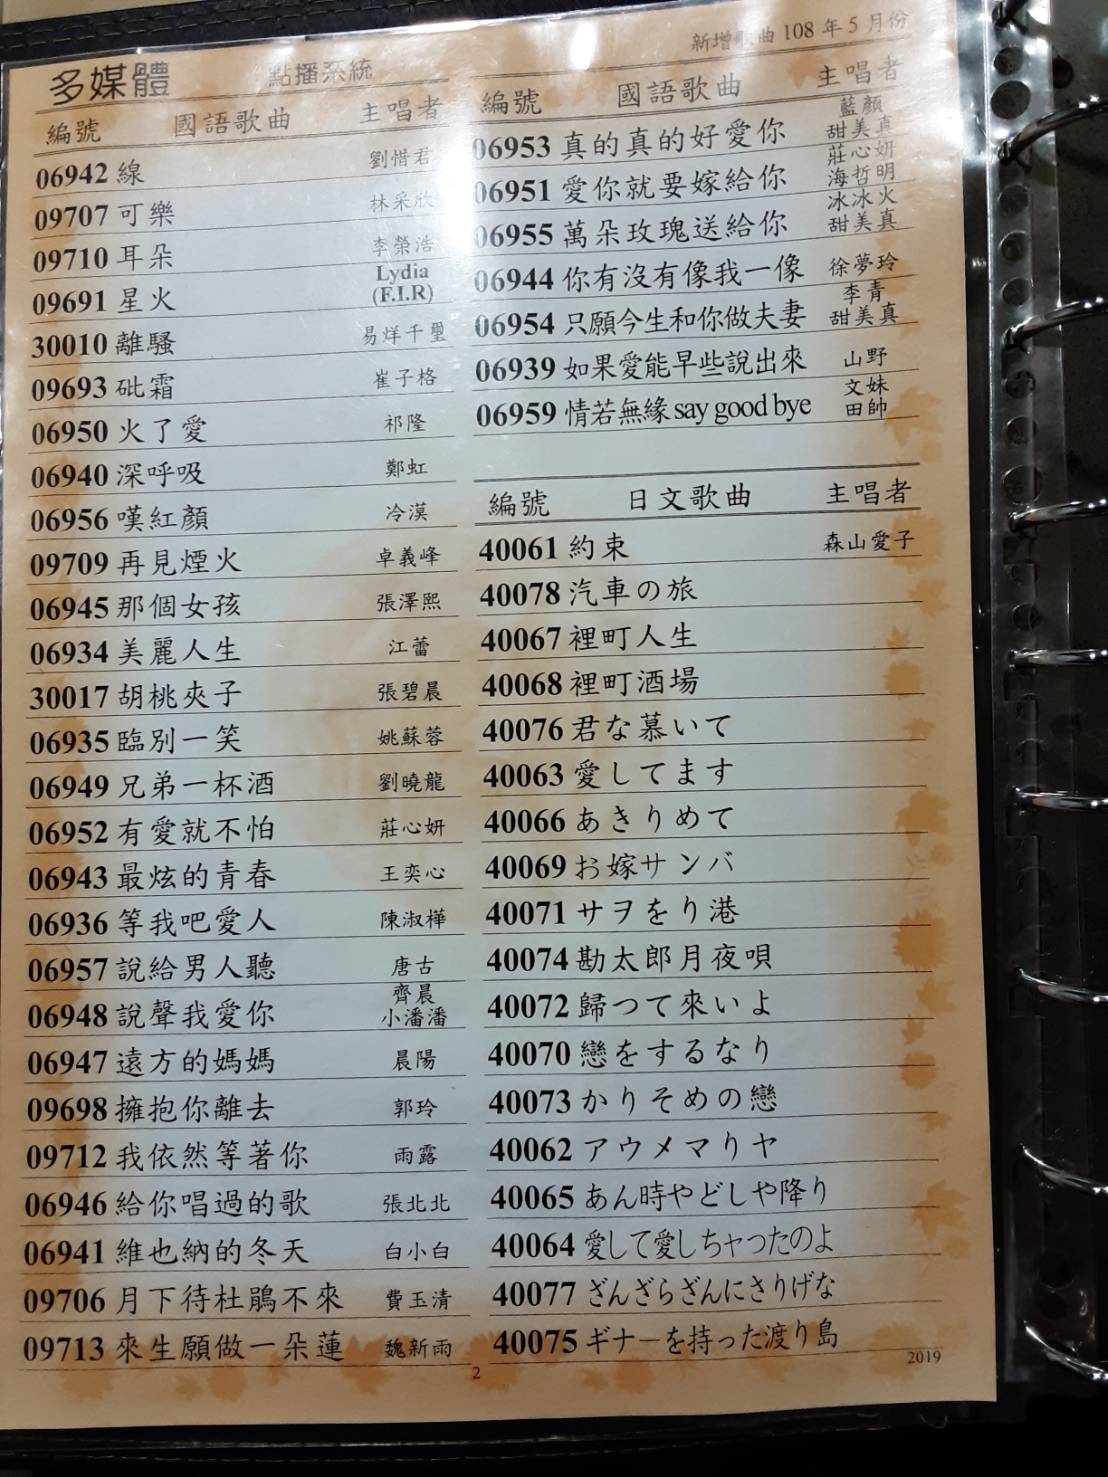 新增歌曲 108 年 5 月份
多媒體 點播系統
編號 國語歌曲 主唱者
06942 線 劉惜君
09707 可樂 林采欣
09710 耳朵 李榮浩
09691 星火 Lydia (F.I.R)
30010 離騷 易烊千璽
09693 砒霜 崔子格
06950 火了愛 祁隆
06940 深呼吸 鄭虹
06956 嘆紅顏 冷漠
09709 再見煙火 卓義峰
06945 那個女孩 張澤熙
06934 美麗人生 江蕾
30017 胡桃夾子 張碧晨
06935 臨別一笑 姚蘇蓉
06949 兄弟一杯酒 劉曉龍
06952 有愛就不怕 莊心妍
06943 最炫的青春 王奕心
06936 等我吧愛人 陳淑樺
06957 說給男人聽 唐古
06948 說聲我愛你 齊晨 小潘潘
06947 遠方的媽媽 晨陽
09698 擁抱你離去 郭玲
09712 我依然等著你 雨露
06946 給你唱過的歌 張北北
06941 維也納的冬天 白小白
09706 月下待杜鵑不來 費玉清
09713 來生願做一朵蓮 魏新雨
編號 國語歌曲 主唱者
06953 真的真的好愛你 藍顏 甜美真
06951 愛你就要嫁給你 莊心妍 海哲明
06955 萬朵玫瑰送給你 冰冰火 甜美真
06944 你有沒有像我一像 徐夢玲
06954 只願今生和你做夫妻 李青 甜美真
06939 如果愛能早些說出來 山野
06959 情若無緣 say good bye 文妹 田帥
編號 日文歌曲 主唱者
40061 約束 森山愛子
40078 汽車の旅
40067 裡町人生
40068 裡町酒場
40076 君な慕いて
40063 愛してます
40066 あきりめて
40069 お嫁サンバ
40071 サヲをり港
40074 勘太郎月夜唄
40072 歸つて來いよ
40070 戀をするなり
40073 かりそめの戀
40062 アウメマリヤ
40065 あん時やどしや降り
40064 愛して愛しちャつたのよ
40077 ざんざらざんにさりげな
40075 ギナーを持った渡り島
2
2019